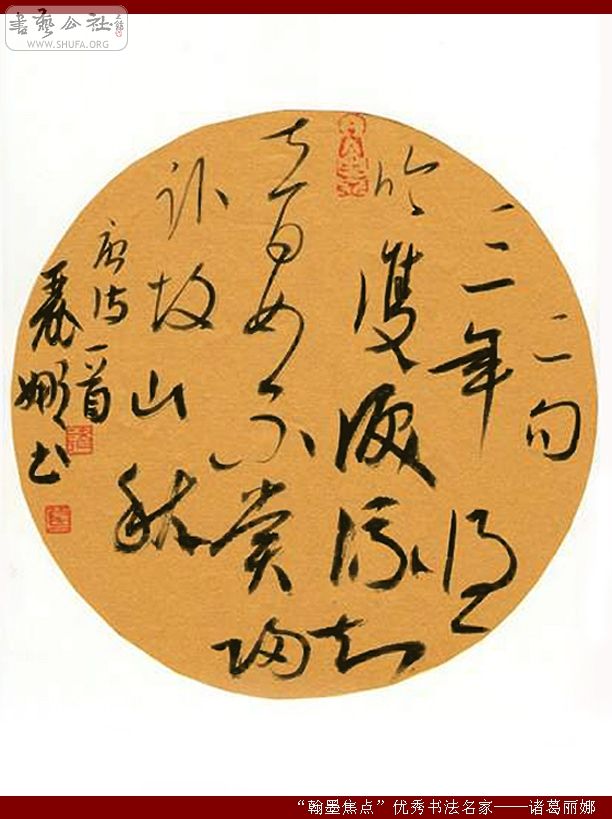 書藝公社
WWW.SHUFA.ORG
二句
三年得一
吟雙淚流知
音如不賞歸
卧故山秋
唐诗一首
麗娜书
“翰墨焦点”优秀书法名家——诸葛丽娜